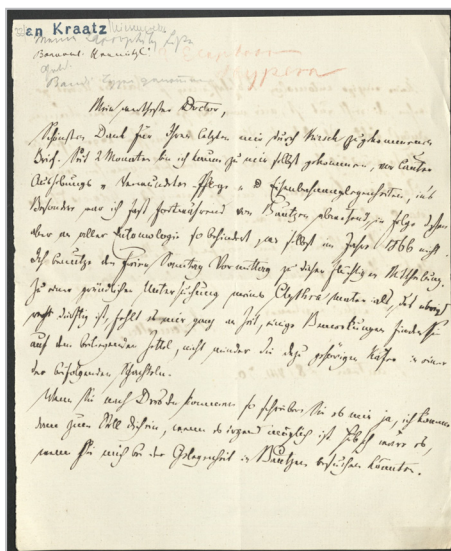 en Kraatz
Mein verehrtester Doctor,
Schönsten Dank für Ihren letzten mir durch Kirsch zugekommenen
Brief. Seit 2 Monaten bin ich kaum zu mir selbst gekommen, vor lauter
Aushebungs u Verwundeten-Pflege u Eisenbahnangelegenheiten, ins
Besondere war ich fast fortwährend von Bautzen abwesend, in Folge dessen
aber an aller Entomologie so behindert, wie selbst im Jahre 1866 nicht.
Ich benutze den freien Sonntag Vormittag zu dieser flüchtigen Mittheilung.
Zu einer gründlichen Untersuchung meines Clythra materials, das übrigens
recht dürftig ist, fehlt es mir ganz an Zeit, einige Bemerkungen finden Sie
auf dem beiliegenden Zettel, nicht minder die dazu gehörigen Käfer in einer
der beifolgenden Schachteln.
Wenn Sie nach Dresden kommen so schreiben Sie es mir ja, ich komme
dann zur Stelle, wenn es irgend möglich ist, hübsch wäre es,
wenn Sie mich bei der Gelegenheit in Bautzen besuchen könnten.